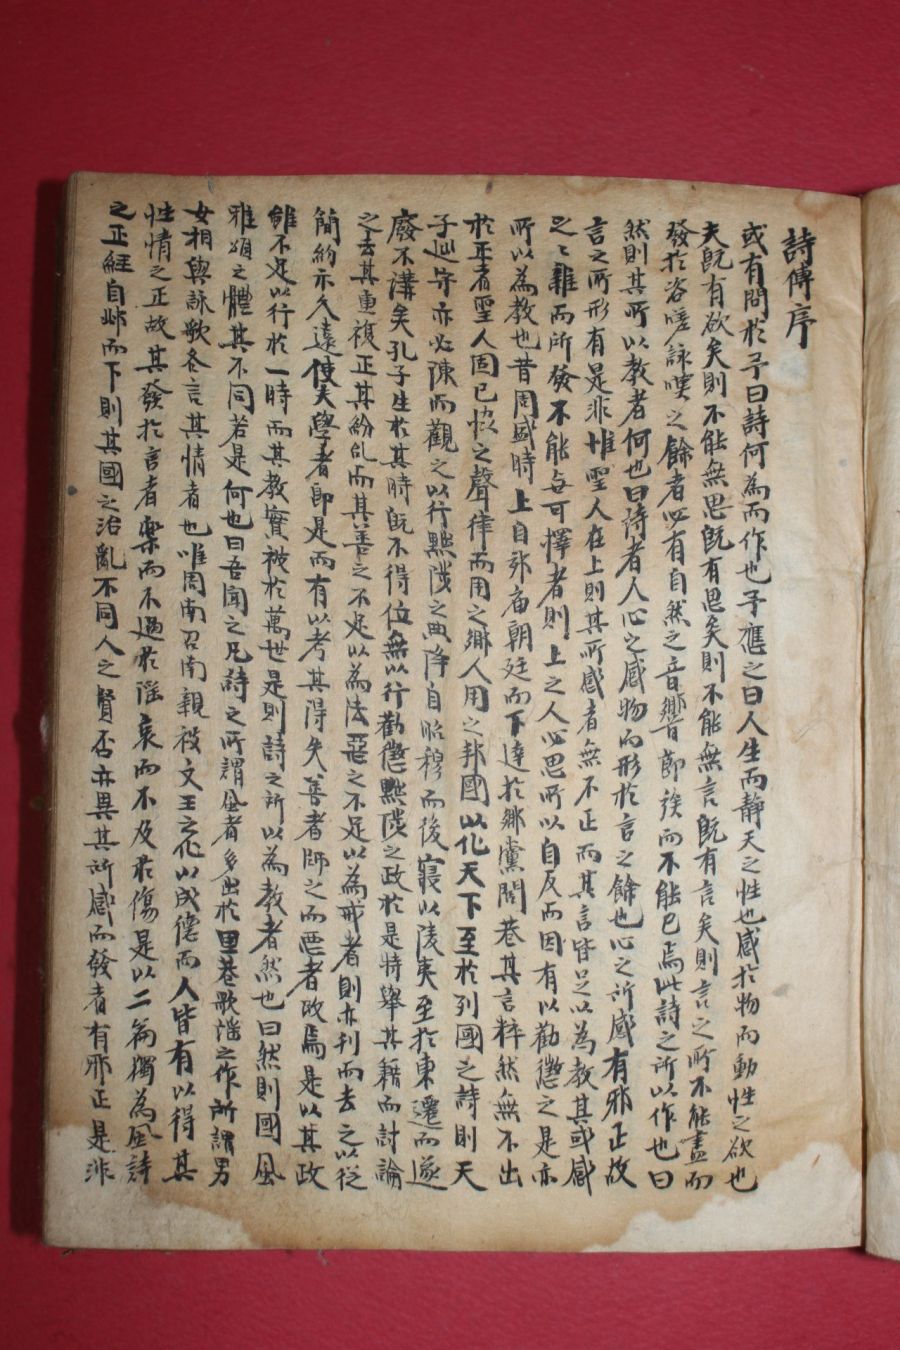 詩傳序
或有問於予曰詩何爲而作也予應之曰人生而靜天之性也感於物而動性之欲也
夫旣有欲矣則不能無思旣有思矣則不能無言旣有言矣則言之所不能盡而
發於咨嗟詠嘆之餘者必有自然之音響節族而不能已焉此詩之所以作也曰
然則其所以教者何也曰詩者人心之感物而形於言之餘也心之所感有邪正故
言之所形有是非惟聖人在上則其所感者無不正而其言皆足以為教其或感
之之雜而所發不能無可擇者則上之人必思所以自反而因有以勸懲之是亦
所以為教也昔周盛時上自郊庙朝廷而下達於鄉黨閭巷其言粹然無不出
於正者聖人固已恊之聲律而用之鄉人用之邦國以化天下至於列國之詩則天
子巡守亦必陳而觀之以行黜陟之典降自昭穆而後寢以陵夷至於東遷而遂
廢不講矣孔子生於其時旣不得位無以行勸懲黜陟之政於是特舉其籍而討論
之去其重複正其紛乱而其善之不足以為法惡之不足以為戒者則亦刊而去之以從
簡約示久遠使夫學者即是而有以考其得失善者師之而惡者改焉是以其政
雖不足以行於一時而其教實被於萬世是則詩之所以為教者然也曰然則國風
雅頌之體其不同若是何也曰吾聞之凡詩之所謂風者多出於里巷歌謠之作所謂男
女相與詠歌各言其情者也唯周南召南親被文王之化以成德而人皆有以得其
性情之正故其發於言者樂而不過於淫哀而不及於傷是以二篇獨為風詩
之正經自邶而下則其國之治亂不同人之賢否亦異其所感而發者有邪正是非